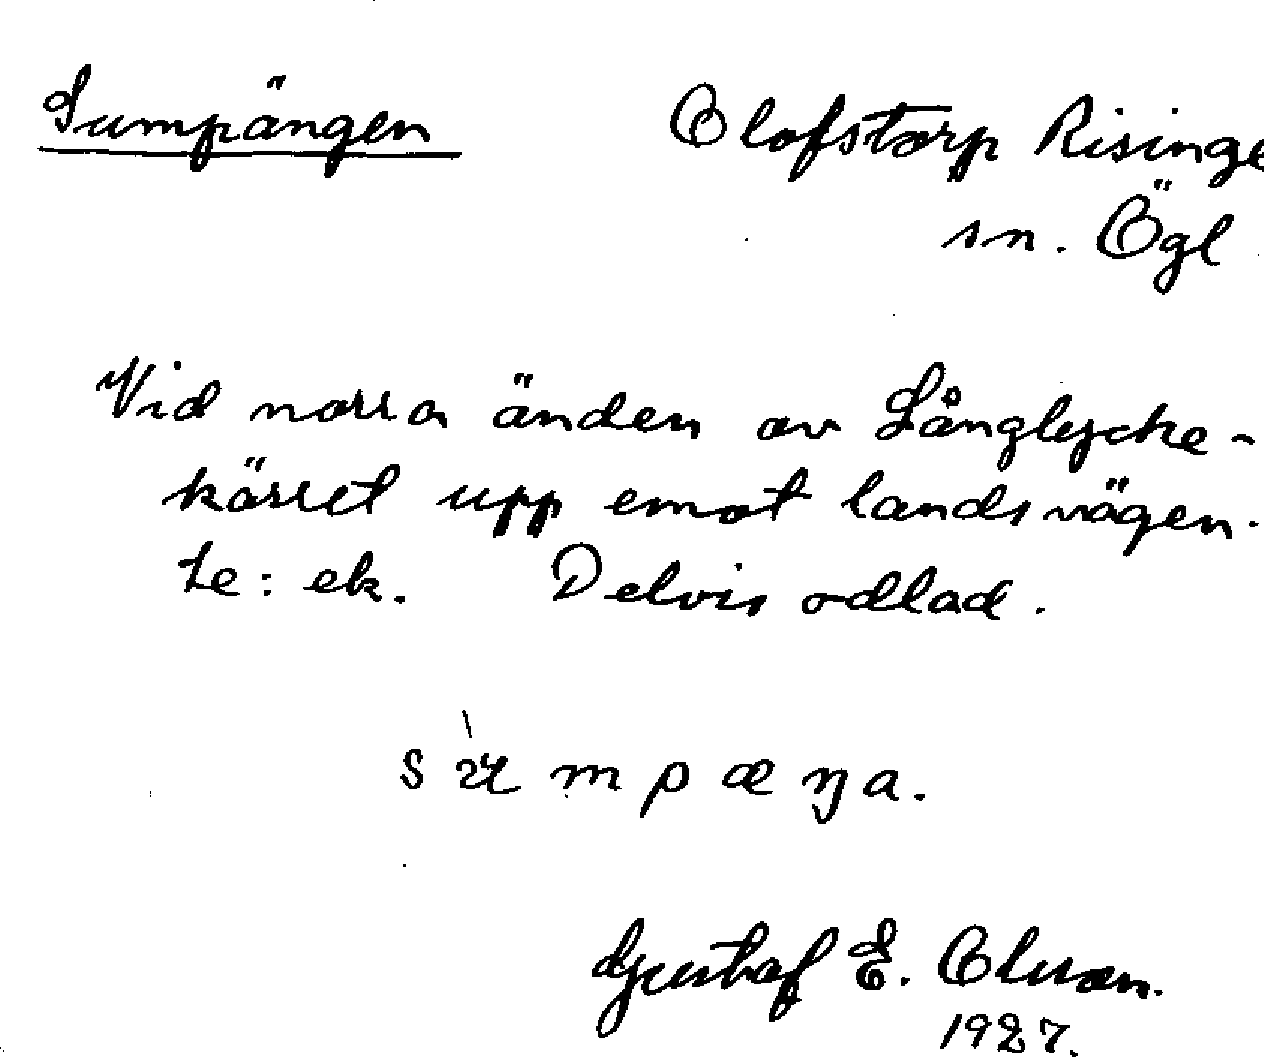 Sumpängen Olofstorp Risinge
sn. Ögl
Vid norra änden av Långlycke-
kärret upp emot landsvägen.
te: ek. Delvis odlad.
Gustaf E. Olsson.
1927.